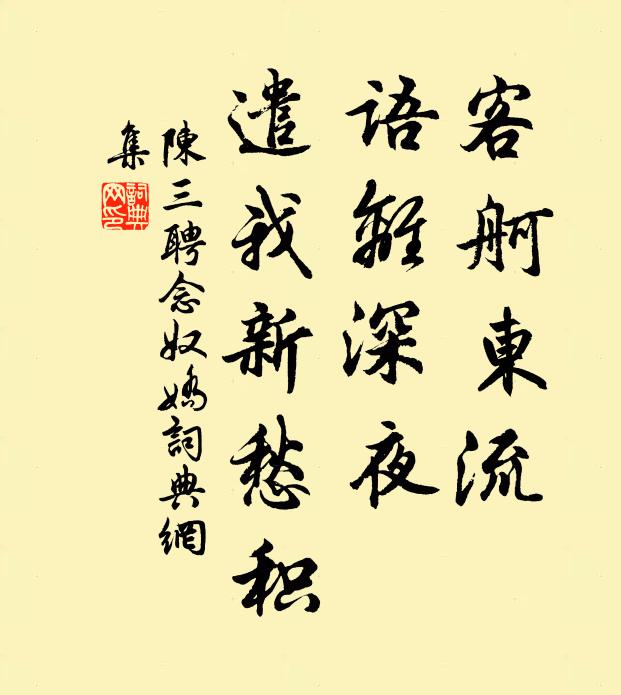 客舸東流
語離深夜
遣我新愁积
陳三聘念奴嬌詞典網
集
詞典
网印